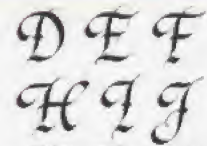 D E F
H I J